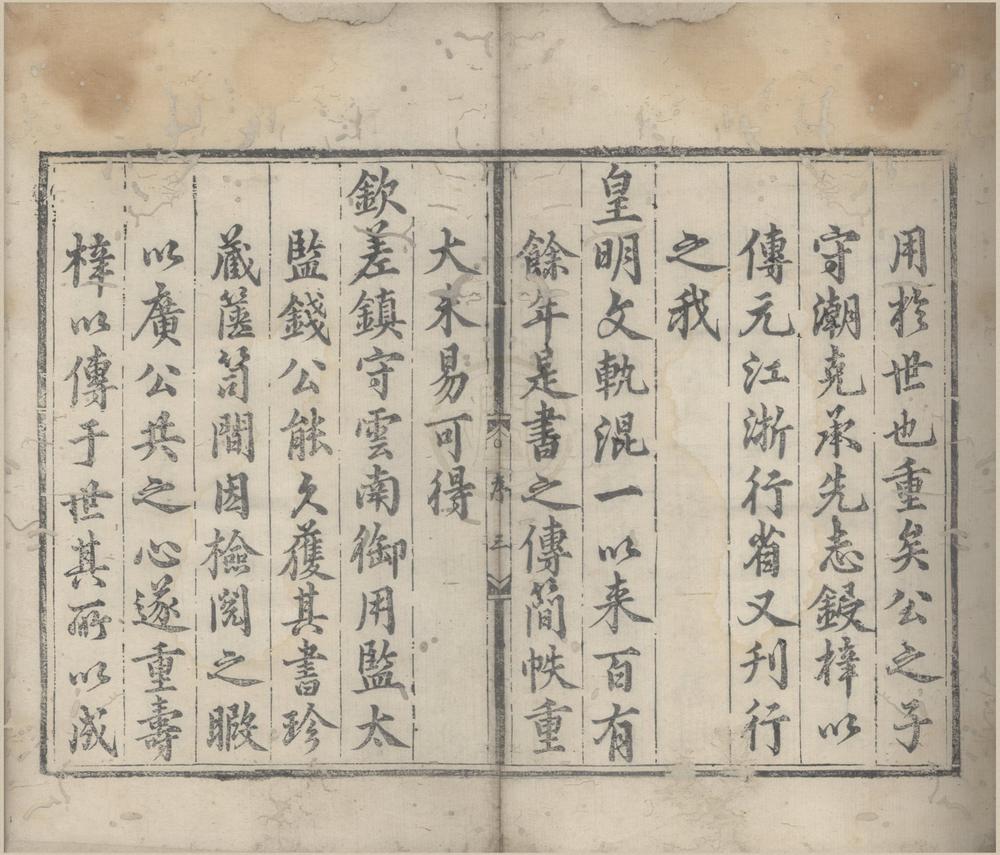 用於世也重矣公之子
守潮克承先志鋟梓以
傳元江浙行省又刊行
之我
皇明文軌混一以来百有
餘年是書之傳簡帙重
序 三
大未易可得
欽差鎮守雲南御用監太
監錢公能久獲其書珍
蔵篋笥間因檢閱之暇
以廣公共之心遂重壽
梓以傳于世其所以成